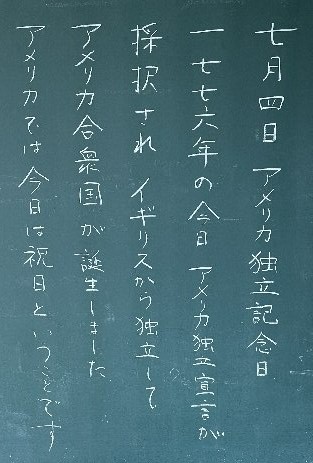 七月四日 アメリカ独立記念日
一七七六年の今日 アメリカ独立宣言が
採択され イギリスから独立して
アメリカ合衆国が誕生しました
アメリカでは今日は祝日ということです